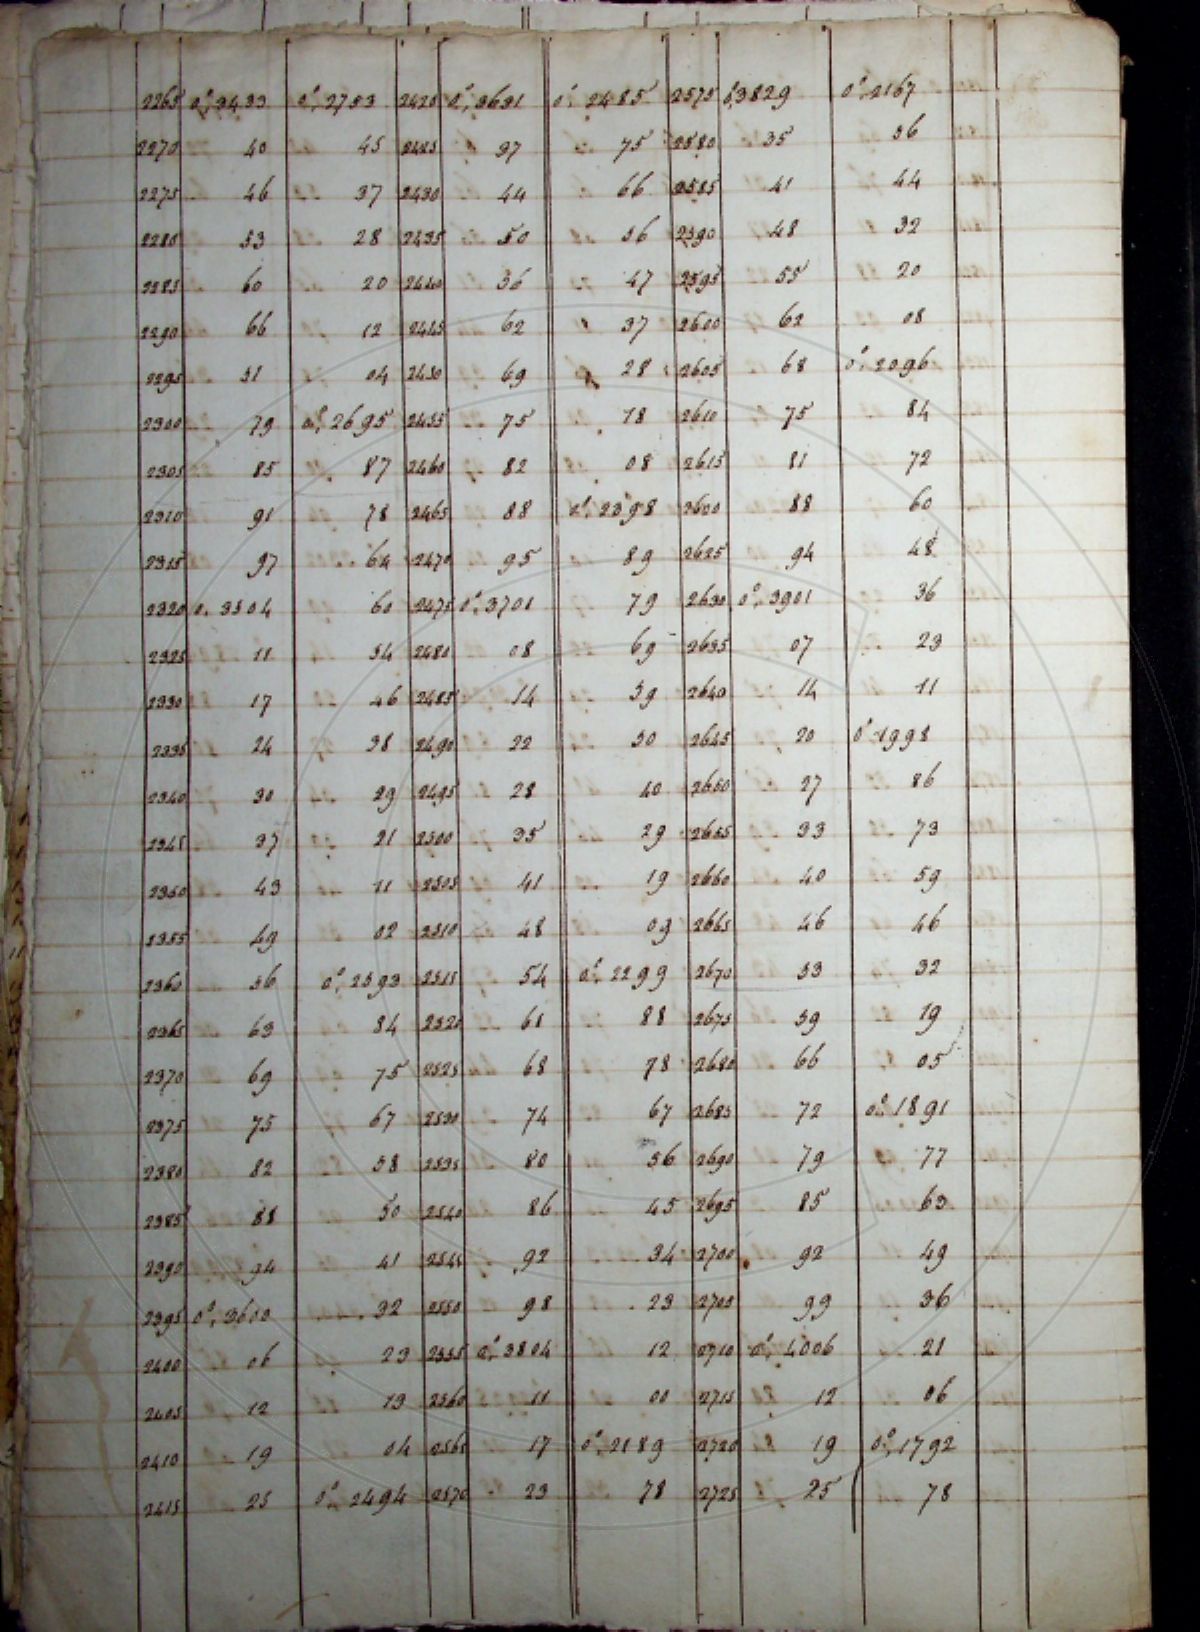 2265 0°,3433 0°,2753 2420 0°,3631 0°,2485 2575 0,3829 0°,2167
2270 40 45 2425 37 75 2580 35 56
2275 46 37 2430 44 66 2585 41 44
2280 53 28 2435 50 56 2590 48 32
2285 60 20 2440 56 47 2595 55 20
2290 66 12 2445 62 37 2600 62 08
2295 51 04 2450 69 28 2605 68 0°,2096
2300 79 0°,2695 2455 75 18 2610 75 84
2305 85 87 2460 82 08 2615 81 72
2310 91 78 2465 88 0°,2398 2600 88 60
2315 97 64 2470 95 89 2625 94 48
2320 0,3504 60 2475 0°,3701 79 2630 0°,3901 36
2325 11 54 2480 08 69 2635 07 23
2330 17 46 2485 14 59 2640 14 11
2335 24 38 2490 22 50 2645 20 0°,1998
2340 30 29 2495 28 40 2650 27 86
2345 37 21 2500 35 29 2655 33 73
2350 43 11 2505 41 19 2660 40 59
2355 49 02 2510 48 09 2665 46 46
2360 56 0°,2593 2515 54 0°,2299 2670 53 32
2365 63 84 2520 61 88 2675 59 19
2370 69 75 2525 68 78 2680 66 05
2375 75 67 2530 74 67 2685 72 0°,1891
2380 82 58 2535 80 56 2690 79 77
2385 88 50 2540 86 45 2695 85 63
2390 94 41 2545 92 34 2700 92 49
2395 0°,3600 32 2550 98 23 2705 99 36
2400 06 23 2555 0°,3804 12 2710 0°,4006 21
2405 12 13 2560 11 00 2715 12 06
2410 19 04 2565 17 0°,2189 2720 19 0°,1792
2415 25 0°,2494 2570 23 78 2725 25 78